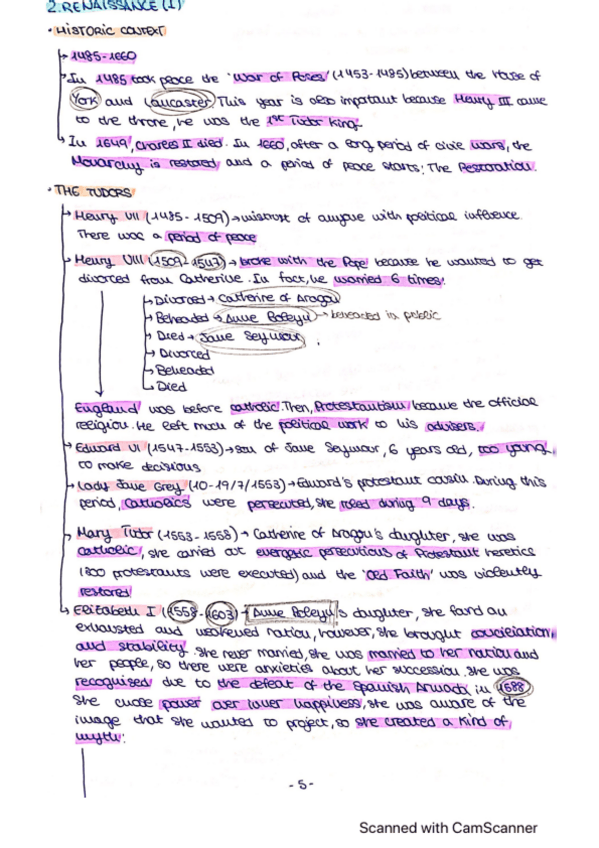 2. RENAISSANCE (I)
· HISTORIC CONTEXT
1485-1660
In 1485 took peace the 'War of Roses' (1453-1485) between the House of
York and Lancaster. This year is also important because Henry III came
to the throne, he was the 1st Tudor King.
In 1649, Charles II died. In 1660, after a long period of civic wars, the
Monarchy is restored and a period of peace starts: The Restoration.
· THE TUDORS
Henry VII (1485-1509) → mistrust of anyone with political inference.
There was a period of peace
Henry VIII (1509-1547) → broke with the Pope because he wanted to get
divorced from Catherine. In fact, he married 6 times:
Divorced → Catherine of Aragon
Beheaded → Anne Boleyn → beheaded in public
Died → Jane Seymour
Divorced
Beheaded
Died
England was before catholic. Then, Protestantism became the official
religion. He left much of the political work to his advisers.
Edward VI (1547-1553) → son of Jane Seymour, 6 years old, too young
to make decisions
Lady Jane Grey (10-19/7/1553) → Edward's protestant cousin. During this
period, Catholics were persecuted, she ruled during 9 days.
Mary Tudor (1553-1558) → Catherine of Aragon's daughter, she was
catholic, she carried out energetic persecutions of Protestant heretics
(300 protestants were executed) and the 'Old Faith' was violently
restored
Elizabeth I (1558-1603) → Anne Boleyn's daughter, she found an
exhausted and weakened nation, however, she brought conciliation
and stability. She never married, she was married to her nation and
her people, so there were anxieties about her succession. She was
recognised due to the defeat of the Spanish Armada in 1588
She chose power over lover happiness, she was aware of the
image that she wanted to project, so she created a kind of
myth:
- 5 -
Scanned with CamScanner